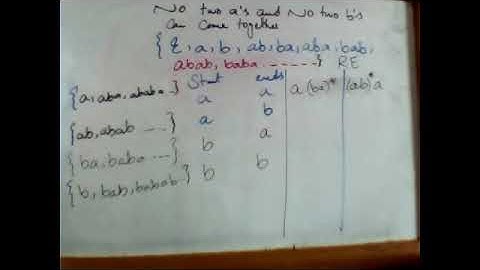 No two a's and No two b's
can come together
{ε, a, b, ab, ba, aba, bab,
abab, baba ------} RE
Start ends
{a, aba, ababa } a a a(ba)* (ab)*a
{ab, abab ...} a b
{ba, baba ...} b a
{b, bab, babab } b b